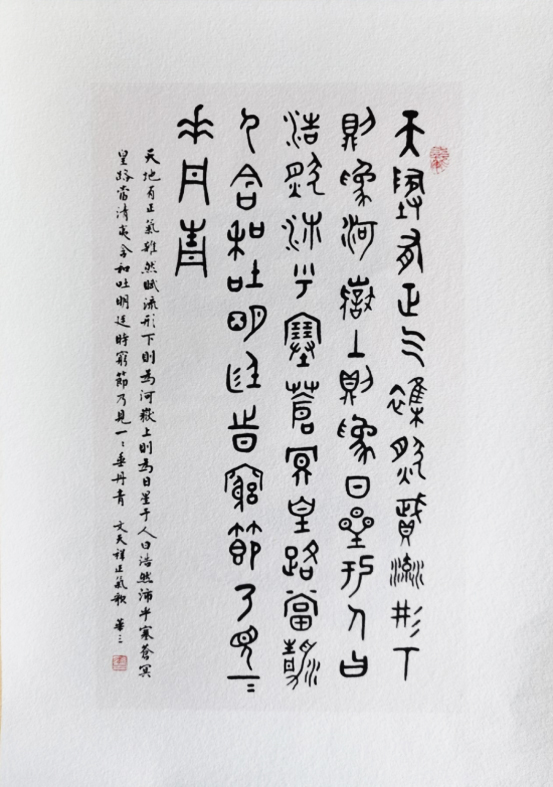 天地有正气雜然賦流形下
則為河嶽上則為日星于人曰
浩然沛乎塞蒼冥皇路當清
夷含和吐明廷時窮節乃見一=
垂丹青
天地有正氣雜然賦流形下則為河嶽上則為日星于人曰浩然沛乎塞蒼冥
皇路當清夷含和吐明廷時窮節乃見一〻垂丹青 文天祥正氣歌